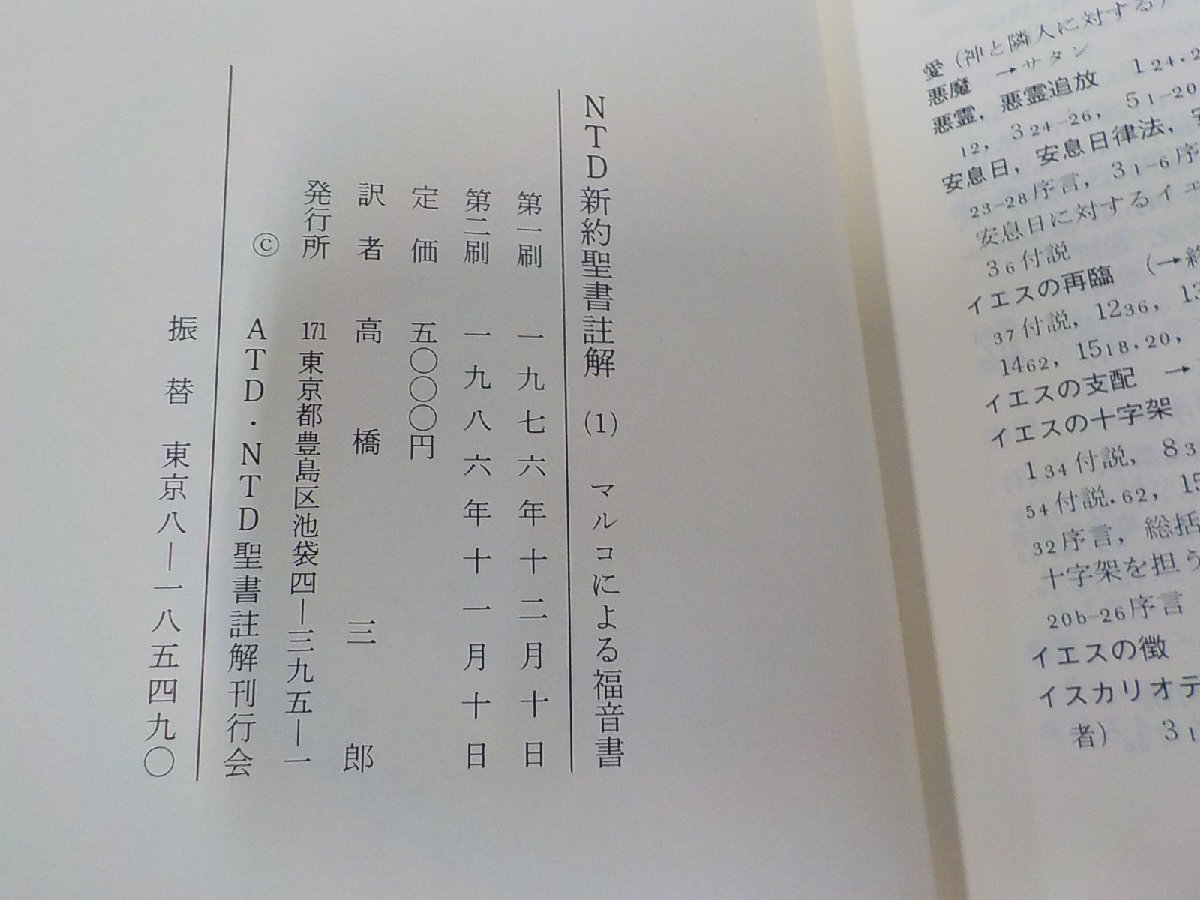 NTD新約聖書註解 (1) マルコによる福音書
第一刷 一九七六年十二月十日
第二刷 一九八六年十一月十日
定価 五〇〇〇円
訳者 高橋三郎
発行所 171東京都豊島区池袋四―三九五―一
© ATD・NTD聖書註解刊行会
振替 東京八―一八五四九〇
愛(神と隣人に対する)
悪魔 →サタン
悪霊,悪霊追放 124.2
12, 324-26, 51-20
安息日,安息日律法,
23-28序言, 31-6序
安息日に対するイエ
36付説
イエスの再臨 (→
37付説, 1236, 13
1462, 1518.20,
イエスの支配 →
イエスの十字架
134付説, 83
54付説.62, 15
32序言,総括
十字架を担う
20b-26序言
イエスの徴
イスカリオテ
者) 31